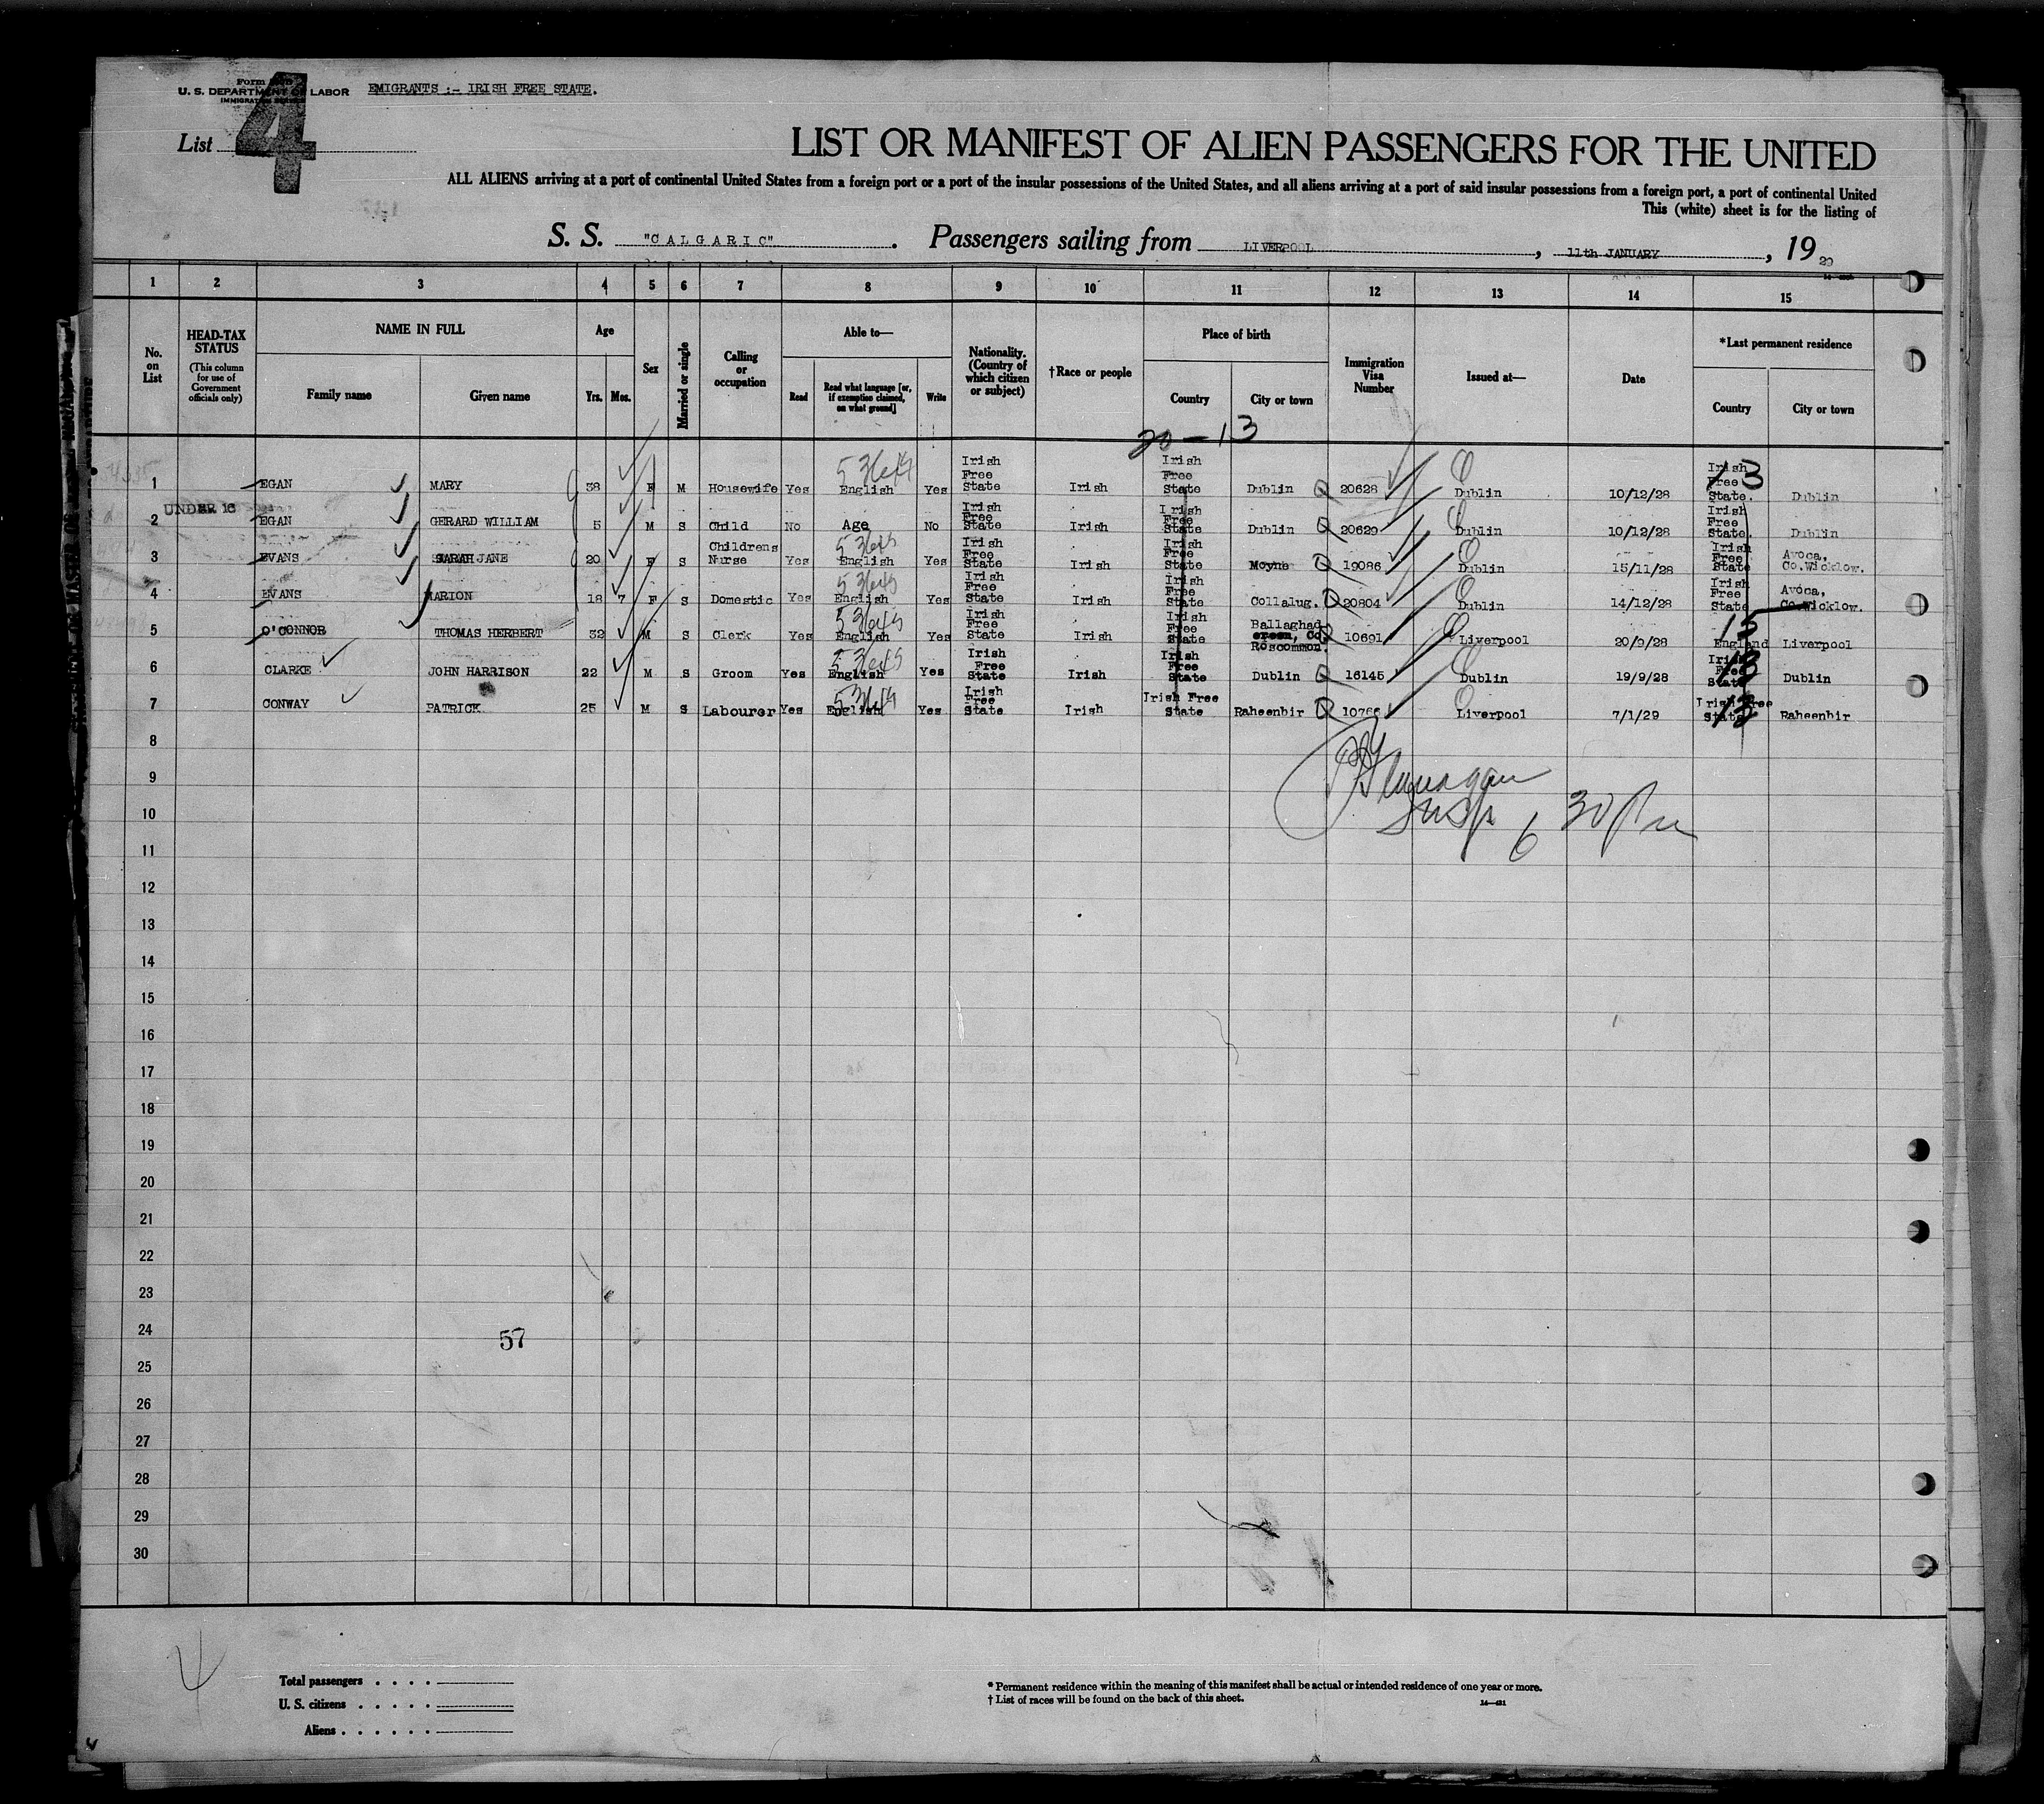 Form
U. S. DEPARTMENT OF LABOR
IMMIGRATION SERVICE
EMIGRANTS :- IRISH FREE STATE.
List 4
LIST OR MANIFEST OF ALIEN PASSENGERS FOR THE UNITED
ALL ALIENS arriving at a port of continental United States from a foreign port or a port of the insular possessions of the United States, and all aliens arriving at a port of said insular possessions from a foreign port, a port of continental United
This (white) sheet is for the listing of
S. S. "CALGARIC". Passengers sailing from LIVERPOOL, 11th JANUARY, 19 29
1 2 3 4 5 6 7 8 9 10 11 12 13 14 15
No. on List
HEAD-TAX STATUS
(This column for use of Government officials only)
NAME IN FULL
Family name Given name
Age
Yrs. Mos.
Sex
Married or single
Calling or occupation
Able to—
Read Read what language [or, if exemption claimed, on what ground] Write
Nationality. (Country of which citizen or subject)
†Race or people
Place of birth
Country City or town
Immigration Visa Number
Issued at—
Date
*Last permanent residence
Country City or town
20 — 13
1 EGAN MARY 38 F M Housewife Yes English Yes Irish Free State Irish Irish Free State Dublin Q 20628 Dublin 10/12/28 Irish Free State. 13 Dublin
UNDER 16
2 EGAN GERARD WILLIAM 5 M S Child No Age No Irish Free State Irish Irish Free State Dublin Q 20629 Dublin 10/12/28 Irish Free State. Dublin
3 EVANS SARAH JANE 20 F S Childrens Nurse Yes English Yes Irish Free State Irish Irish Free State Moyne Q 19086 Dublin 15/11/28 Irish Free State Avoca, Co.Wicklow.
4 EVANS MARION 18 7 F S Domestic Yes English Yes Irish Free State Irish Irish Free State Collalug. Q 20804 Dublin 14/12/28 Irish Free State Avoca, Co.Wicklow.
5 O'CONNOR THOMAS HERBERT 32 M S Clerk Yes English Yes Irish Free State Irish Irish Free State Ballaghad ereen, Co. Roscommon. Q 10691 Liverpool 20/9/28 13 England Liverpool
6 CLARKE JOHN HARRISON 22 M S Groom Yes English Yes Irish Free State Irish Irish Free State Dublin Q 16145 Dublin 19/9/28 Irish Free State 13 Dublin
7 CONWAY PATRICK 25 M S Labourer Yes English Yes Irish Free State Irish Irish Free State Raheenbir Q 10766 Liverpool 7/1/29 Irish Free State 13 Raheenbir
8
9
Flanagan
10
Insp 6 30 Pm
11
12
13
14
15
16
17
18
19
20
21
22
23
24
57
25
26
27
28
29
30
4
Total passengers . . . .
U. S. citizens . . . . .
Aliens . . . . . .
* Permanent residence within the meaning of this manifest shall be actual or intended residence of one year or more.
† List of races will be found on the back of this sheet.
14—421